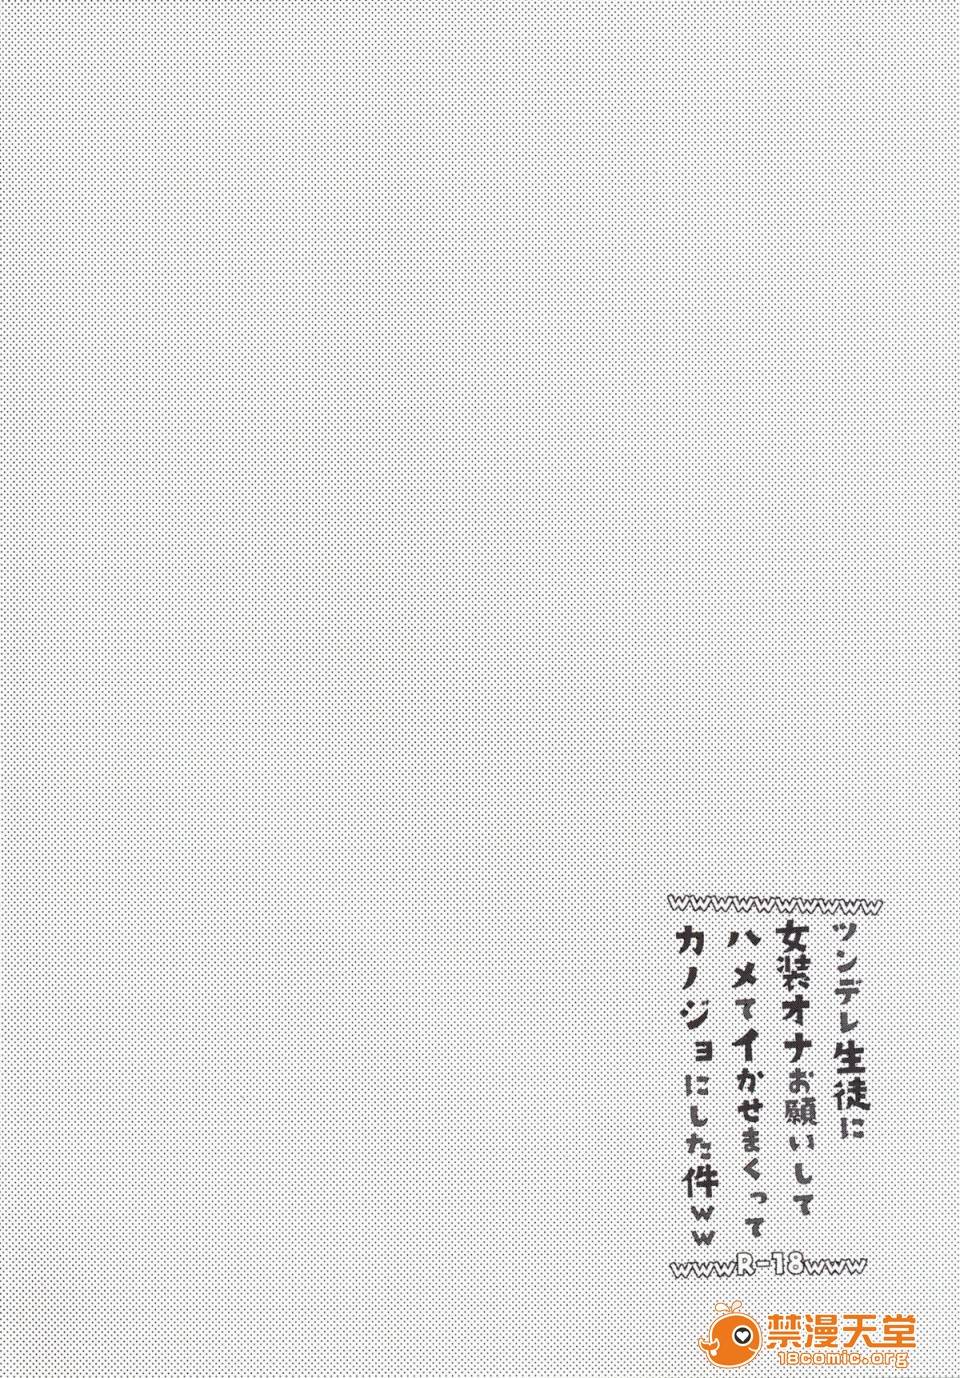 wwwwwwwwww
ツンデレ生徒に
女装オナお願いして
ハメてイかせまくって
カノジョにした件ww
wwwR-18www
禁漫天堂
18comic.org